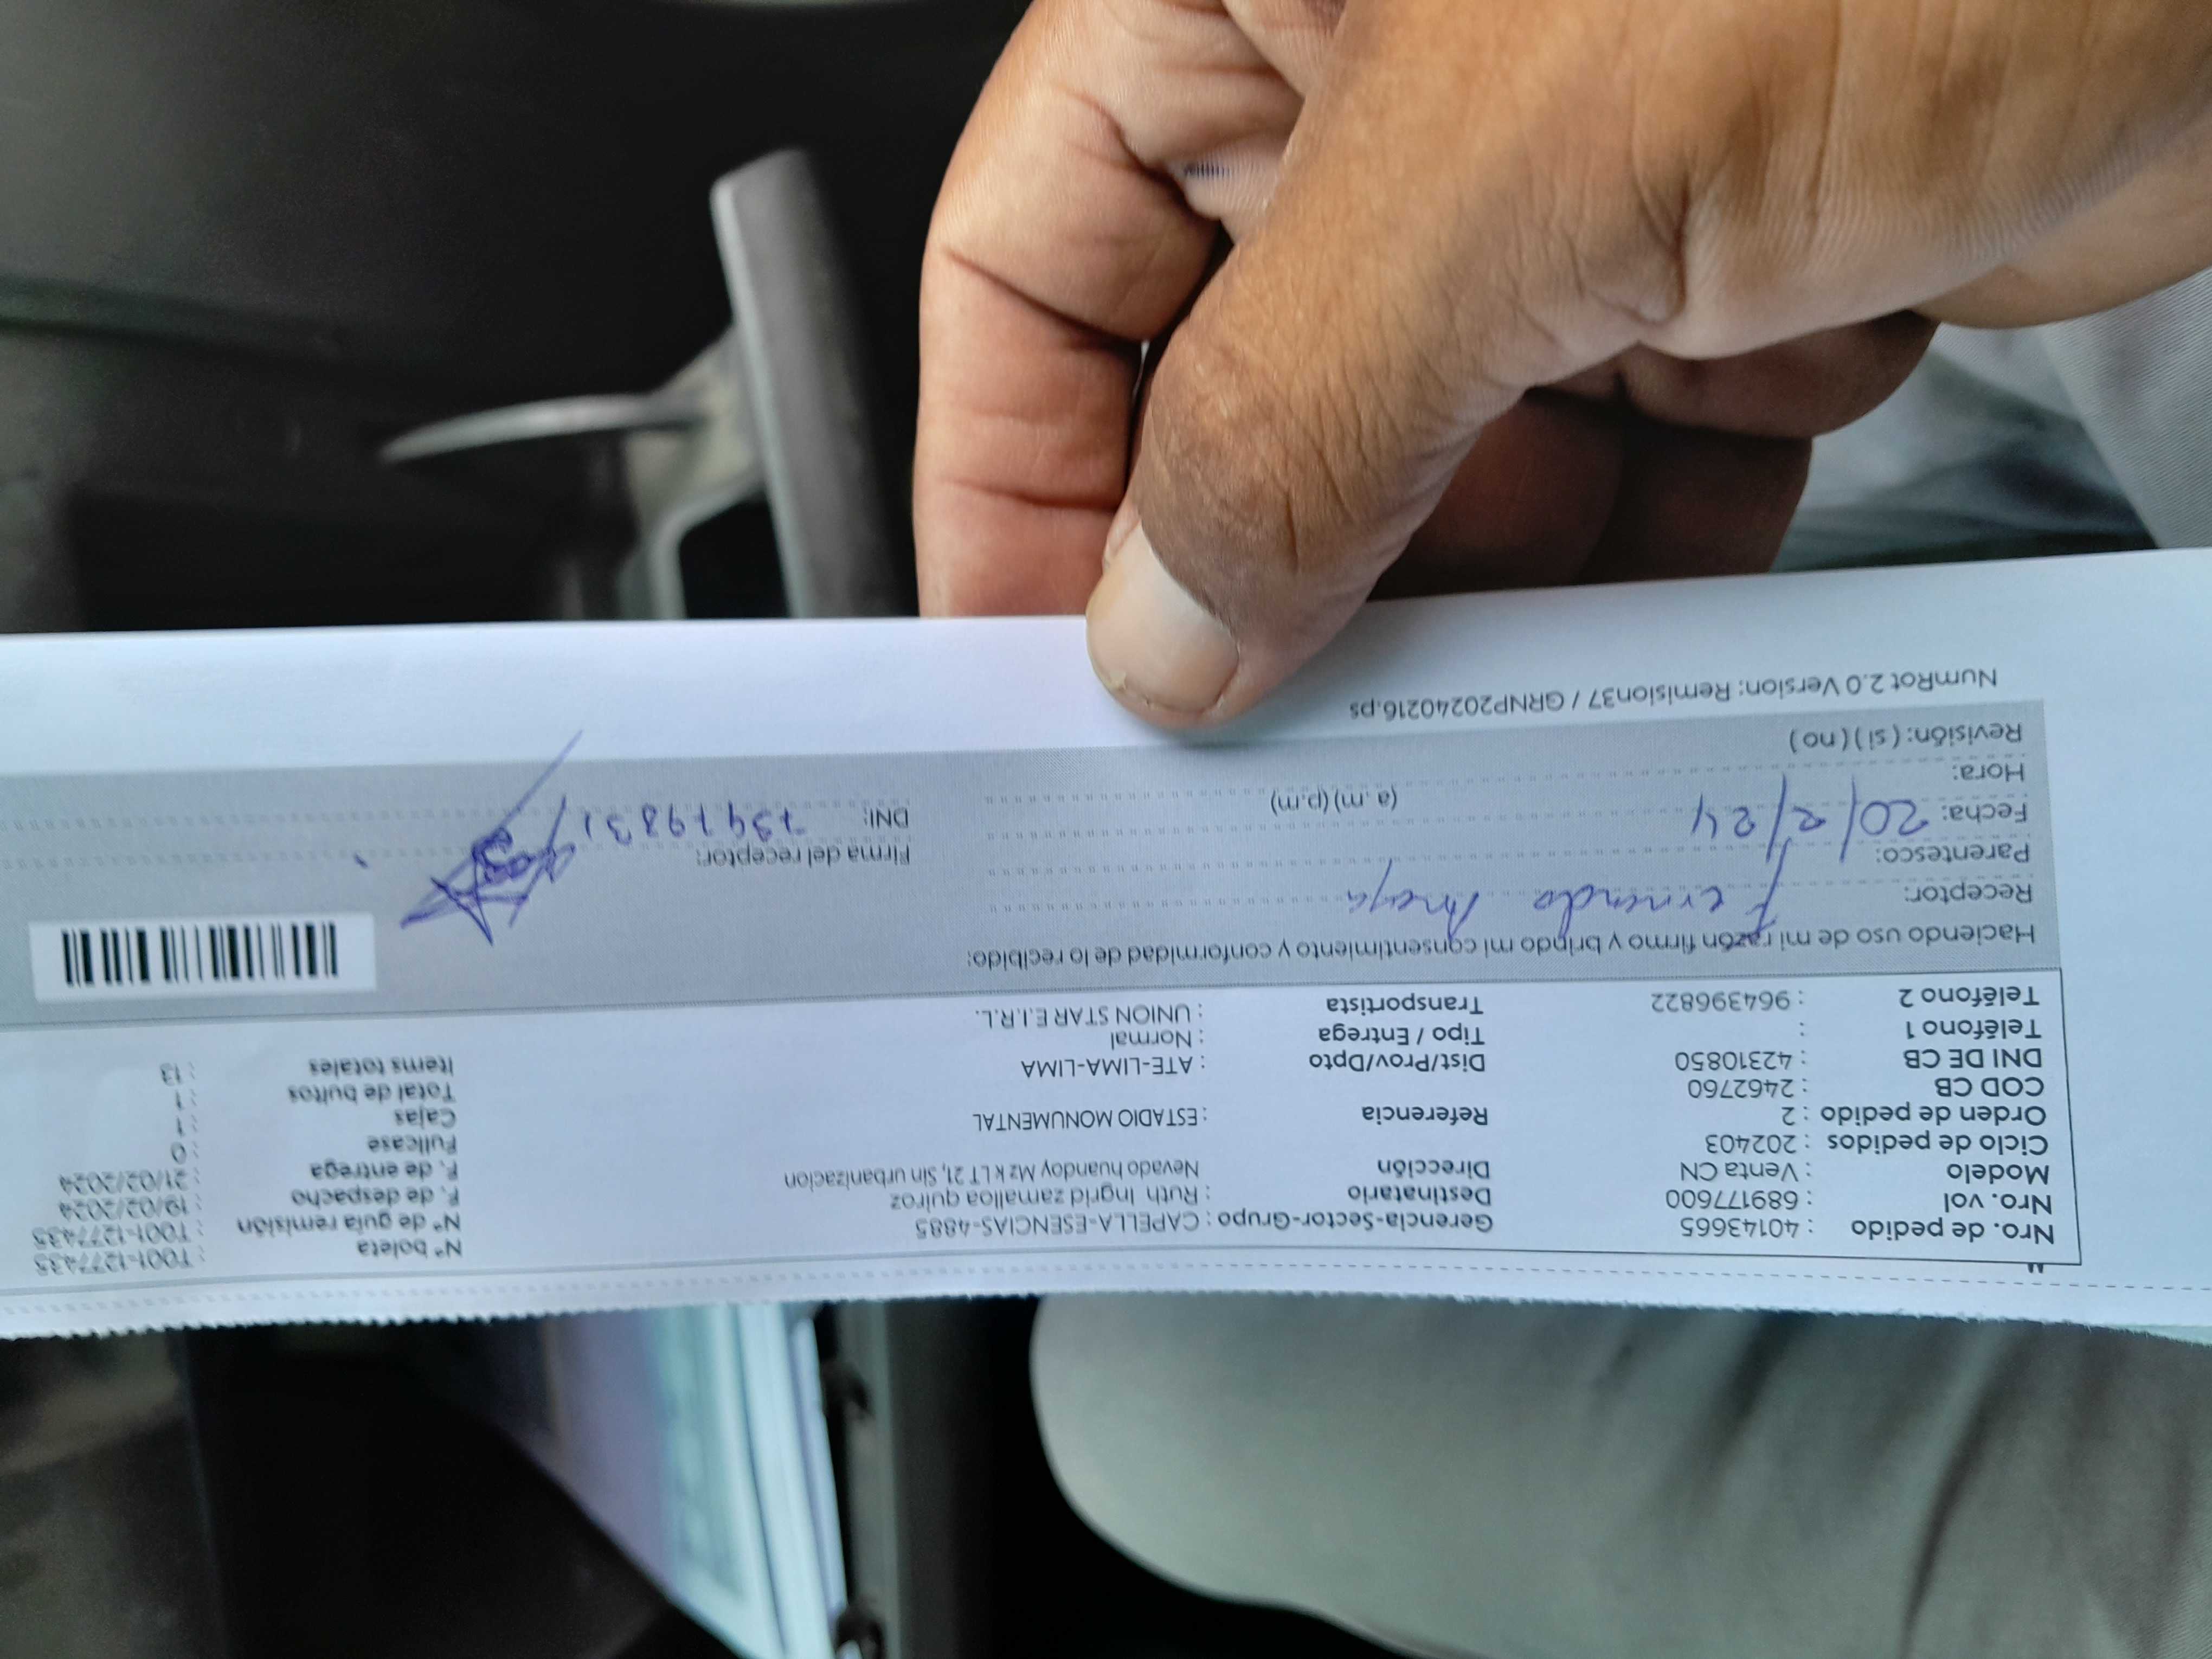 Nro. de pedido : 40143665
Nro. vol : 689177600
Modelo : Venta CN
Ciclo de pedidos : 202403
Orden de pedido : 2
COD CB : 2462760
DNI DE CB : 42310850
Teléfono 1 :
Teléfono 2 : 964396822
Gerencia-Sector-Grupo : CAPELLA-ESENCIAS-4885
Destinatario : Ruth Ingrid zamalloa quiroz
Dirección Nevado huandoy Mz k LT 21, Sin urbanizacion
Referencia : ESTADIO MONUMENTAL
Dist/Prov/Dpto : ATE-LIMA-LIMA
Tipo / Entrega : Normal
Transportista : UNION STAR E.I.R.L.
N° boleta : T001-1277435
N° de guía remisión : T001-1277435
F. de despacho : 19/02/2024
F. de entrega : 21/02/2024
Fullcase : 0
Cajas : 1
Total de bultos : 1
Items totales : 13
Haciendo uso de mi razón firmo y brindo mi consentimiento y conformidad de lo recibido:
Receptor: Fernando
Parentesco:
Fecha: 20/2/24
Hora: (a.m) (p.m)
Revisión: ( si ) ( no )
Firma del receptor:
DNI:
NumRot 2.0 Version: Remision37 / GRNP20240216.ps